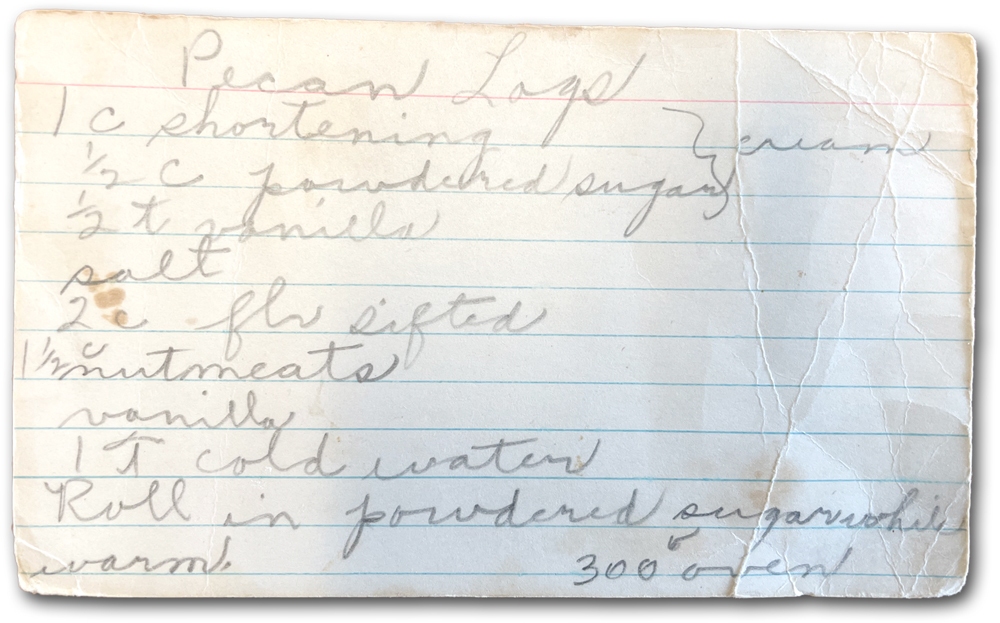 Pecan Logs
1 c shortening } cream
1/2 c powdered sugar
1/2 t vanilla
salt
2 c flr sifted
1 1/2 c nutmeats
vanilla
1 T cold water
Roll in powdered sugar while
warm. 300° oven